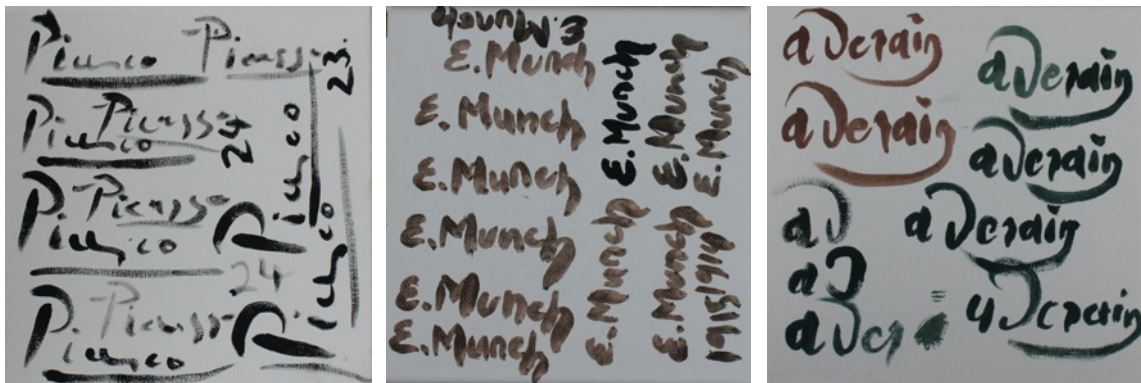 Picasso Picasso
23.
Picasso
Picasso
24
P. Picasso
Picasso
Picasso
24
P. Picasso
Picasso
Picasso
E. Munch
E. Munch
E. Munch
E. Munch
E. Munch
E. Munch
E. Munch
E. Munch
E. Munch
E. Munch
E. Munch
E. Munch
1915/1914
a Derain
a Derain
a Derain
a Derain
a D
a Derain
a D
a Der